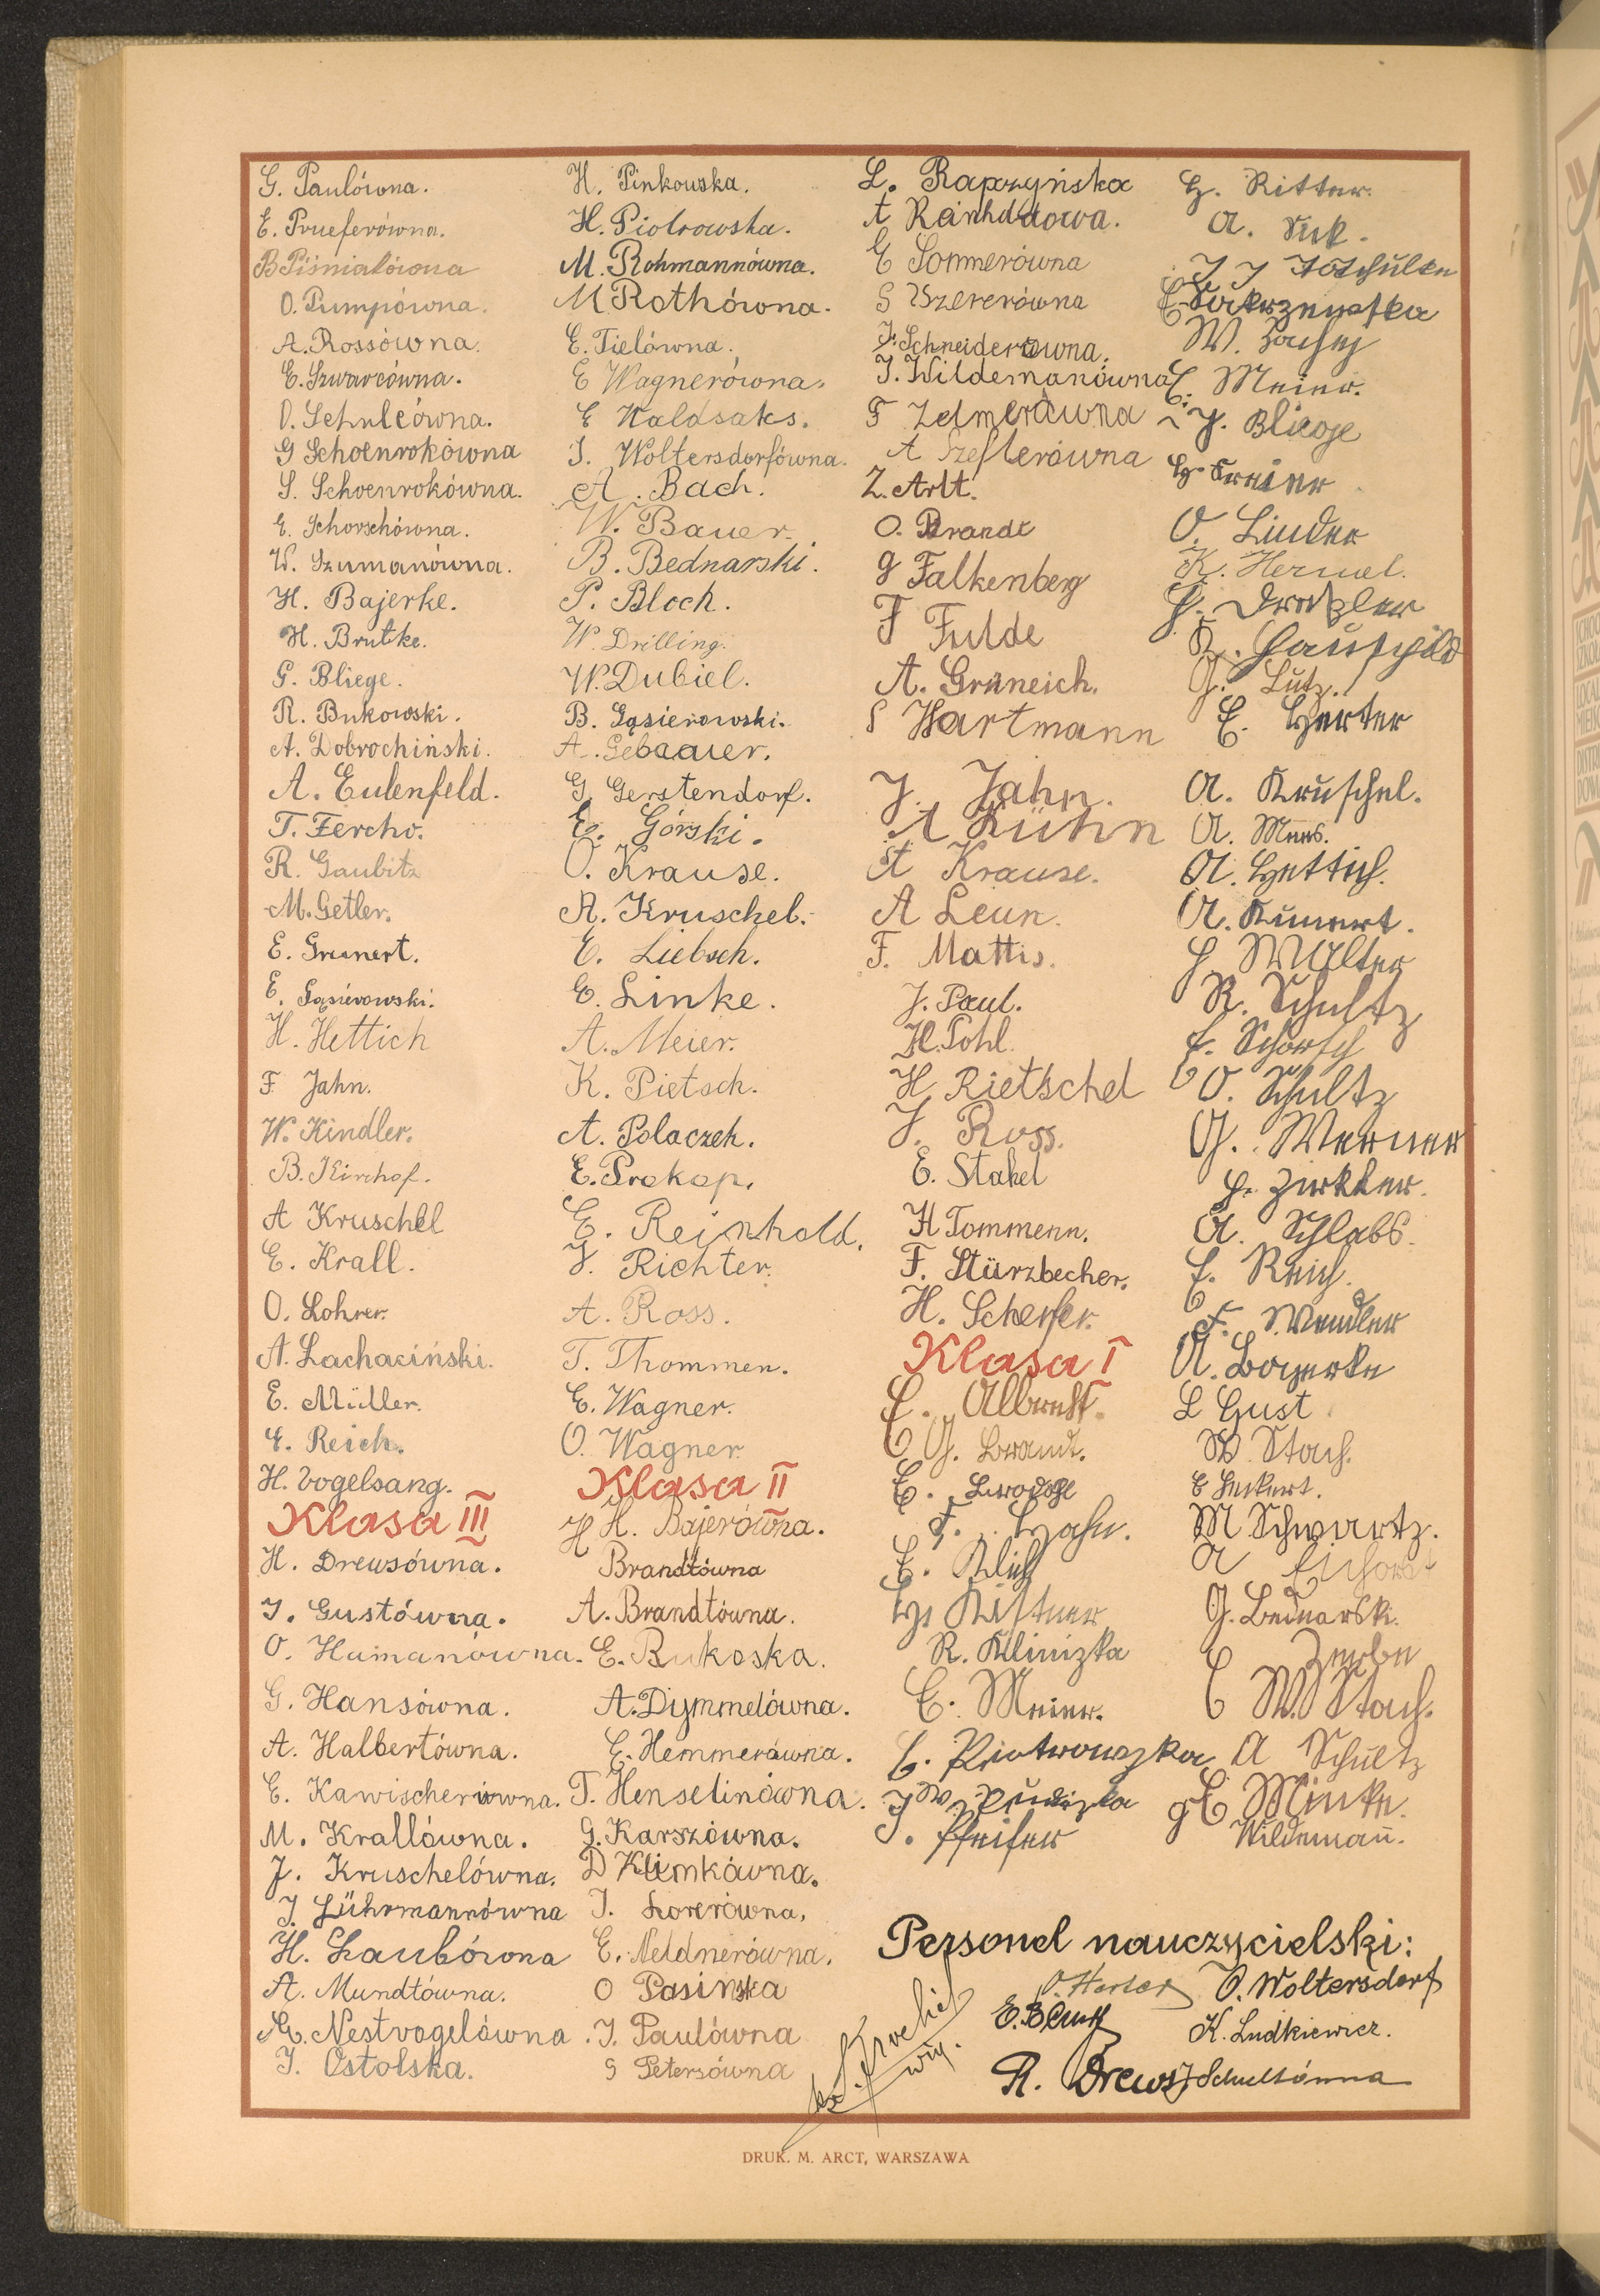 G. Paulówna.
E. Prueferówna.
B Piśniatówna
O. Pumpówna.
A. Rossówna.
E. Szwarcówna.
O. Schulcówna.
G Schoenrokówna
S. Schoenrokówna.
E. Schorschówna.
W. Szumanówna.
H. Bajerke.
H. Brutke.
G. Bliege.
R. Bukowski.
A. Dobrochiński.
A. Eulenfeld.
T. Fercho.
R. Gaubitz
M. Getler.
E. Grunert.
E. Gąsierowski.
H. Hettich
F. Jahn.
W. Kindler.
B. Kirchof.
A Kruschel
E. Krall.
O. Lohrer.
A. Lachaciński.
E. Müller.
E. Reich.
H. Vogelsang.
Klasa III
H. Drewsówna.
I. Gustówna.
O. Hamanówna.
G. Hansówna.
A. Halbertówna.
E. Kawischerówna.
M. Krallówna.
J. Kruschelówna.
J. Lührmannówna
H. Laubówna
A. Mundtówna.
Nestvogelówna
J. Ostolska.
H. Pinkowska.
H. Piotrowska.
M. Rohmannówna.
M Rothówna.
E. Tielówna.
E Wagnerówna.
E Waldsaks.
I. Woltersdorfówna.
A. Bach.
W. Bauer.
B. Bednarski.
P. Bloch.
W. Drilling.
W. Dubiel.
B. Gąsierowski.
A. Gebauer.
G. Gerstendorf.
E. Górski.
O. Krause.
A. Kruschel.
E. Liebsch.
E. Linke.
A. Meier.
K. Pietsch.
A. Polaczek.
E. Prokop.
E. Reinhold.
J. Richter.
A. Ross.
T. Thommen.
E. Wagner.
O. Wagner
Klasa II
H H. Bajerówna.
Brandtówna
A. Brandtówna.
E. Bukoska.
A. Dymmelówna.
E. Hemmerówna.
T. Henselinówna.
G. Karszówna.
D Klimkówna.
I. Lorerówna.
E. Neldnerówna.
O Pasinska
I. Paulówna
G Petersówna
L. Rapczyńska
A Reinholdowa.
E Sommerówna
S
J. Schneiderówna.
J. Wildemanówna
F Zelmerówna
A Szeflerówna
Z. Arlt.
O. Brandt
G Falkenberg
F Fulde
A. Gruneich.
S Hartmann
J. Jahn.
A Kühn
A Krause.
A Leun.
F. Mattis.
J. Paul.
H. Pohl.
H Rietschel
J. Ross.
E. Stakel
H Tommenn.
F. Stürzbecher.
H. Scherfer.
Klasa I
E. Albrecht.
G. Brandt.
E.
F. Hahn.
E. Klich
H. Kistner
R. Klinizka
E. Meier.
E. Piotrowszka
W.
J. Pfeifer
H. Ritter.
A. Suk.
J J
E.
W. Zachej
E. Meier.
J. Bliege
H. Kreier
O. Linder
K. Hermel.
H. Drechsler
R. Hauschild
G. Lutz.
E. Herter
A. Kruschel.
A. Mees.
A. Hettich.
A. Kunert.
H Walter
R. Schultz
E. Schorsch
O. Schultz
G. Werner
H. Zirkler.
A. Schlabs.
E. Reich.
F. Wendler
A. Bayerke
L Gust
W. Stach.
E Heikert.
M Schwartz.
A Eichorst
G. Bednarski.
E Zerbe
W. Stach.
A Schultz
E Minke.
Wildemann.
Personel nauczycielski:
O. Herter O. Woltersdorf
E. K. Ludkiewicz.
R. Drews J Schultówna
DRUK. M. ARCT, WARSZAWA